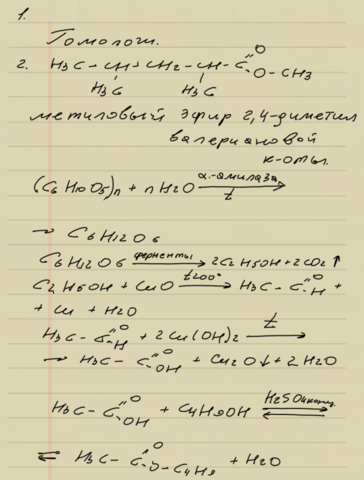 1.
Гомологи.
2. H3C – CH – CH2 – CH – C O O – CH3
H3C H3C
метиловый эфир 2,4-диметил
валериановой
к-оты.
(C6H10O5)n + nH2O α-амилаза t →
→ C6H12O6
C6H12O6 ферменты → 2C2H5OH + 2CO2 ↑
C2H5OH + CuO t200° → H3C – C O H +
+ Cu + H2O
H3C – C O H + 2Cu(OH)2 t →
→ H3C – C O OH + Cu2O ↓ + 2H2O
H3C – C O OH + C4H9OH H2SO4конц. ⇌
⇌ H3C – C O O – C4H9 + H2O